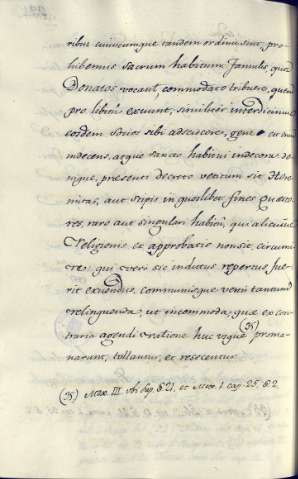 ribus cuiuscumque tandem ordinis sint, pro
hibemus sacrum habitum famulis, quos
Donatos vocant, commodato tribuere, quem
pro libitu exeunt, similiter interdicimus
eosdem socios sibi adsciscere,
indecens, atque sancto habitui indecora de
nique, presenti decreto vetitum sit Here
mitas, aut stipis in quoslibet fines Quaesto
res, raro aut singulari habitu, qui alicuius
Religionis ex approbatis non sit, circumi
re; qui vero sic indutus repertus fue
rit exuendus, communisque vestis tantum
relinquenda; ut incommoda, quae ex con
traria agendi ratione huc usque (35) proma
narunt, tollantur, et resecentur
(35) Mex. III. tit. § 21. et Mex. I. cap. 25. § 2.